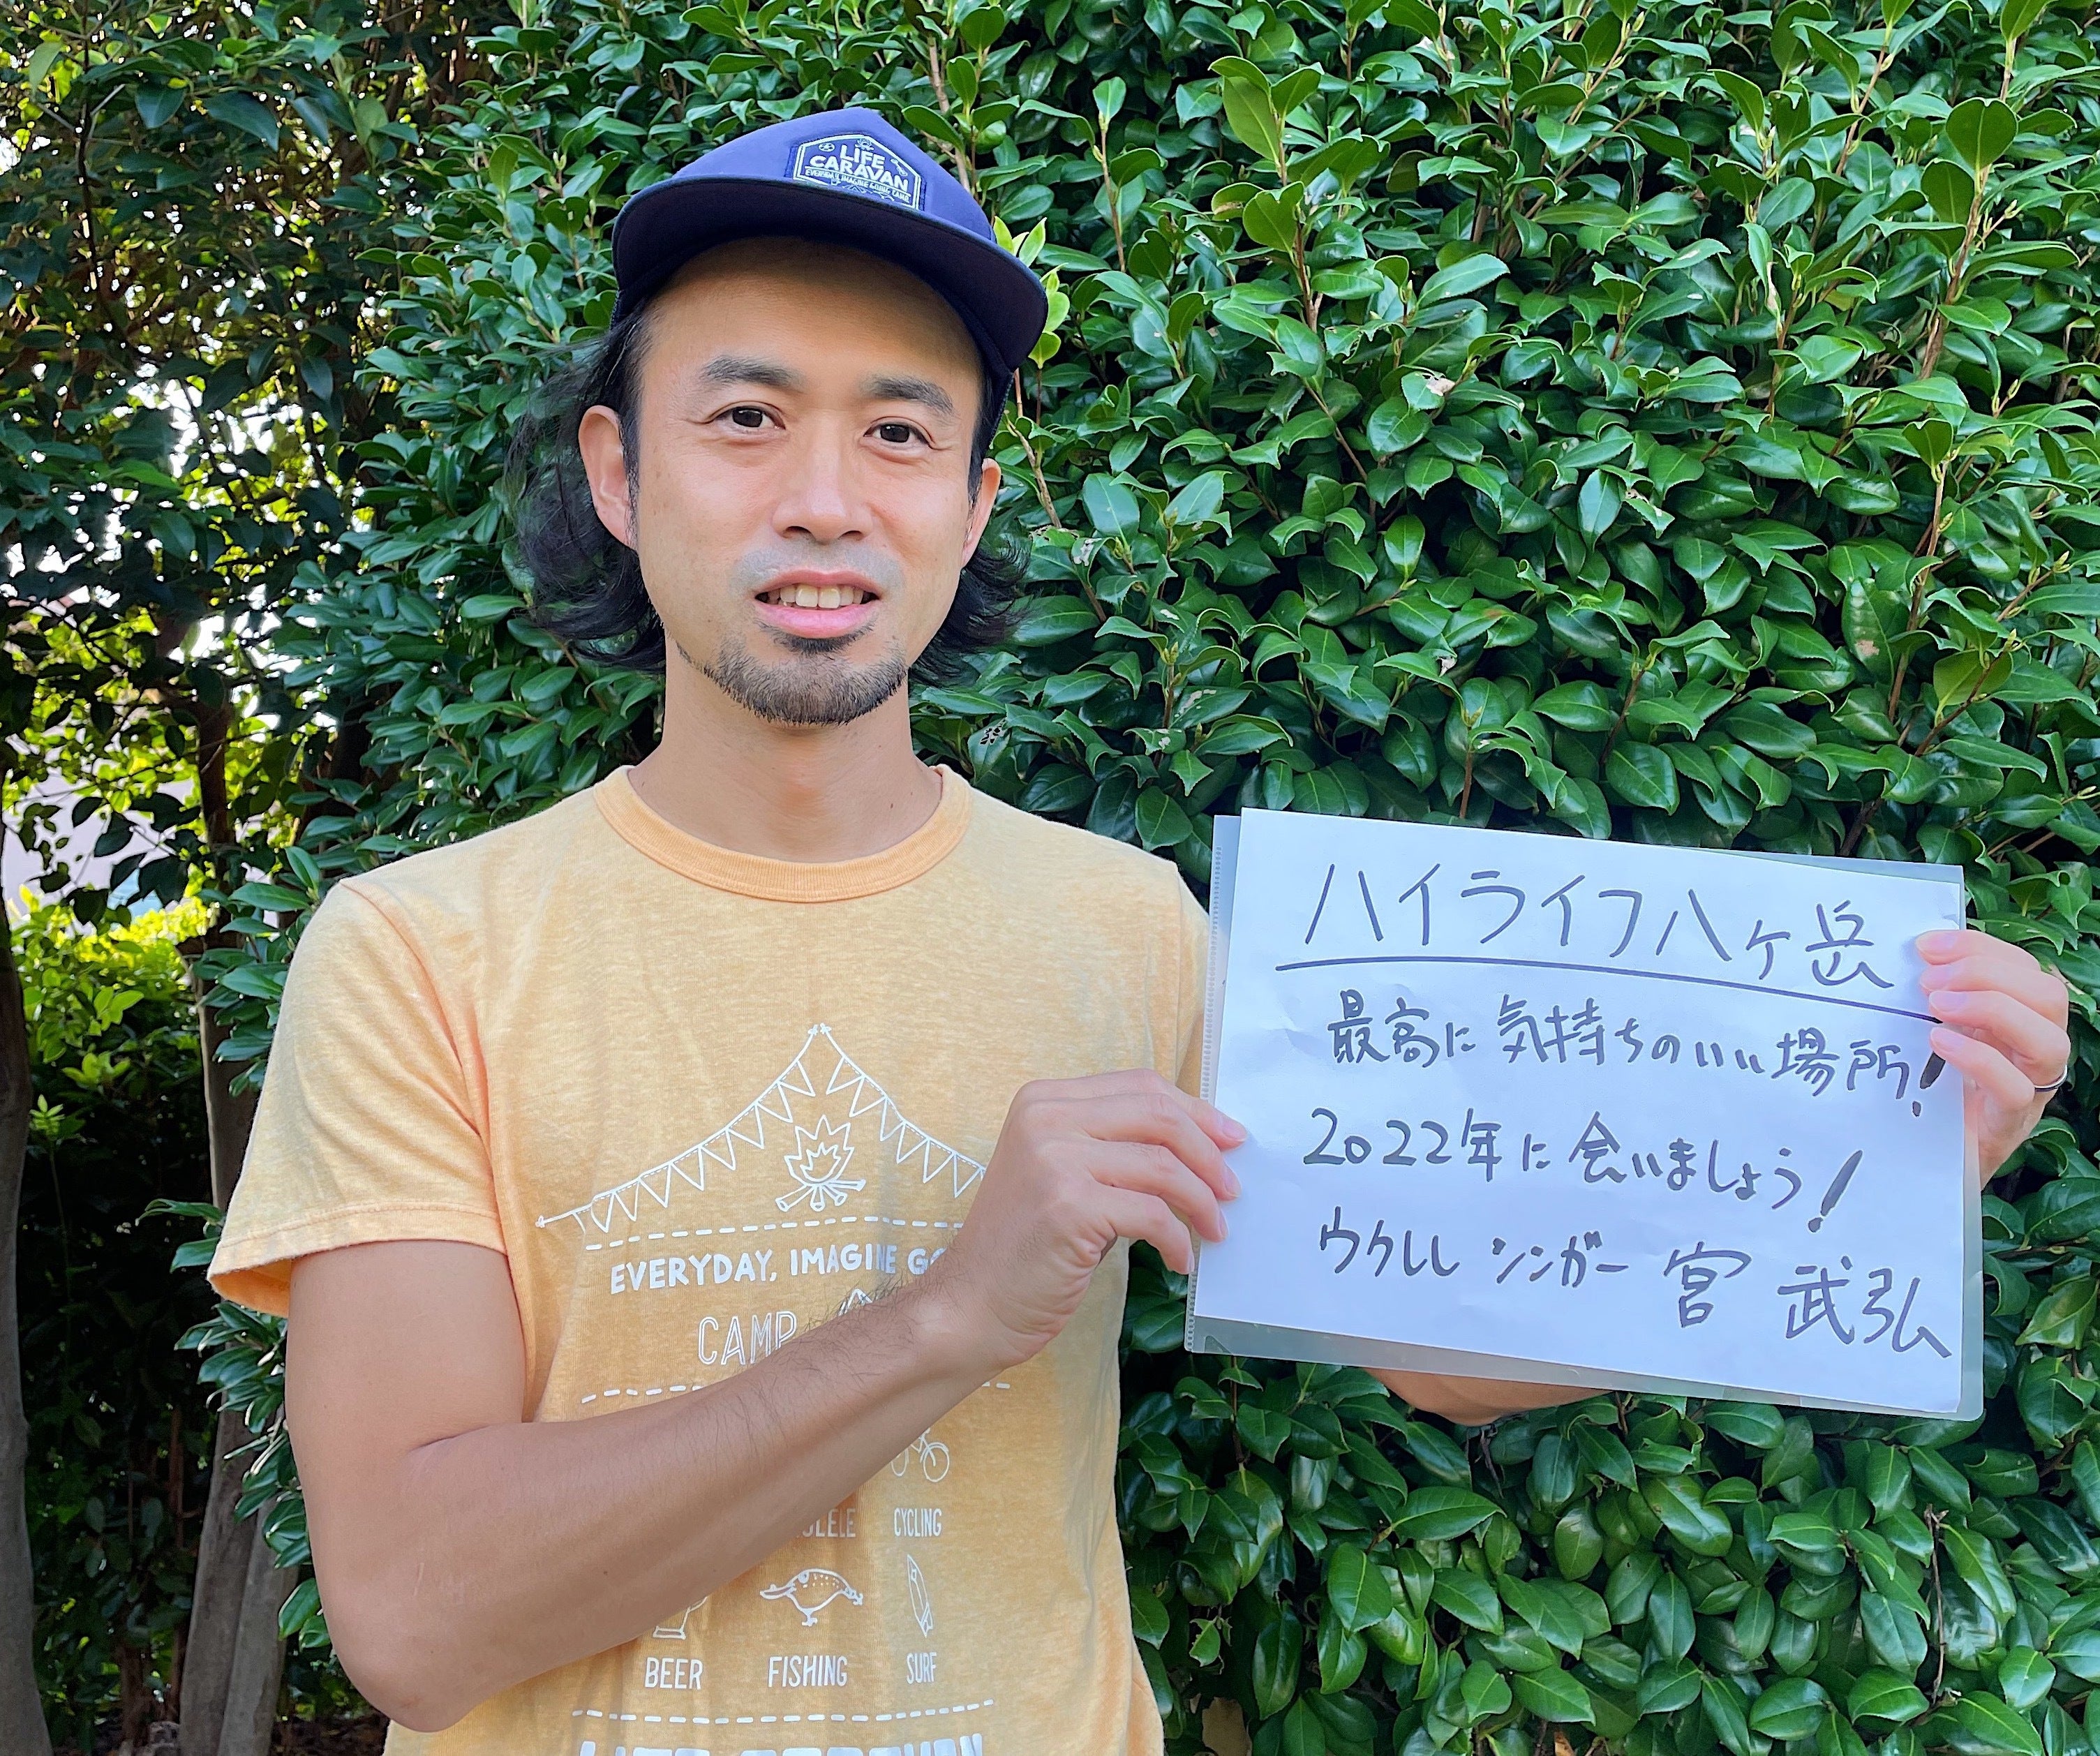 LIFE
CARAVAN
EVERYDAY, IMAGINE GOING CAMP
ハイライフ八ヶ岳
最高に気持ちのいい場所!
2022年に会いましょう!
ウクレレ シンガー 宮 武弘
EVERYDAY, IMAGINE GO
CAMP
CYCLING
BEER FISHING SURF